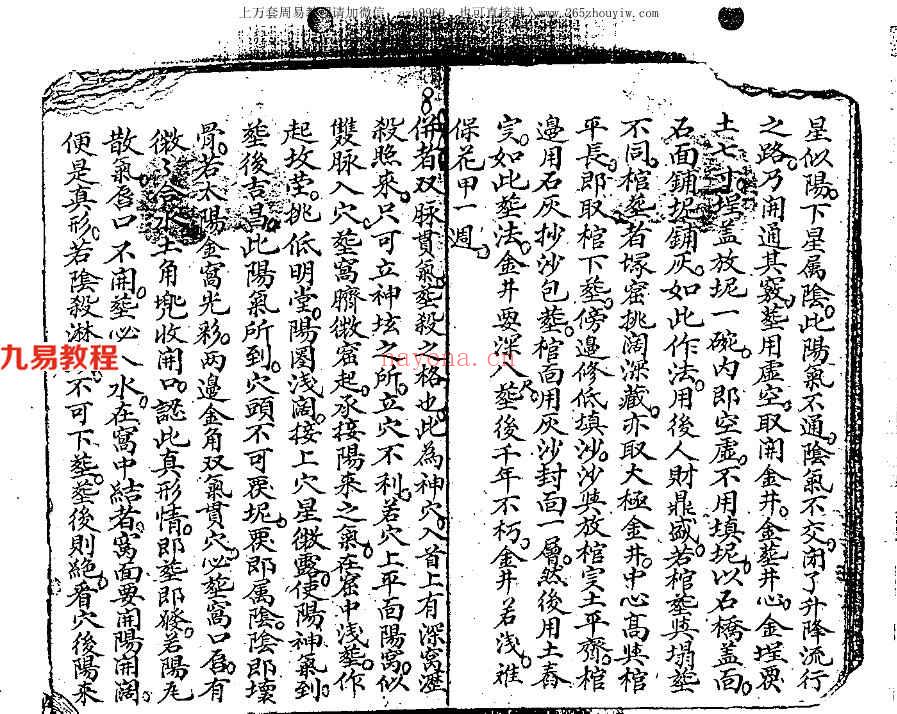 上万套周易教程请加微信 也可直接进入www.265zhouyiw.com
星似陽下星属陰此陽氣不通陰氣不交闭了升降流行
之路乃開通其竅塟用虛空取開金井金塟井心金埕要
土七寸埕盖放坭一碗内即空虛不用填坭以石橋盖面
石面鋪坭鋪灰如此作法用後人財鼎盛若棺塟與塌塟
不同棺塟者塚窑挑闊深藏亦取大極金井中心高與棺
平長即取棺下塟傍邊修低填沙沙與放棺实土平齊棺
邊用石灰抄沙包塟棺面用灰沙封面一層然後用土舂
实如此塟法金井要深入塟後千年不朽金井若浅难
保花甲一週
併者双脉貫氣塟殺之格也此為神穴入首上有深窩瀝
殺照來只可立神坛之所立穴不利若穴上平面陽窩似
雙脉入穴塟窩臍微窑起承接陽來之氣在窑中浅塟作
起故茔挑低明堂陽圏浅闊接上穴星微露使陽神氣到
塟後吉昌此陽氣所到穴頭不可要坭要即属陰陰即壞
骨若太陽金窩光彩两邊金角双氣貫穴心塟窩口唇有
微々合水土角兜收開口認此真形情即塟即發若陽尨
散氣唇口不開塟必入水在窩中結者窩面要開陽開闊
便是真形若陰殺淋不可下塟塟後則絶看穴後陽來
九易教程
nayona.cn